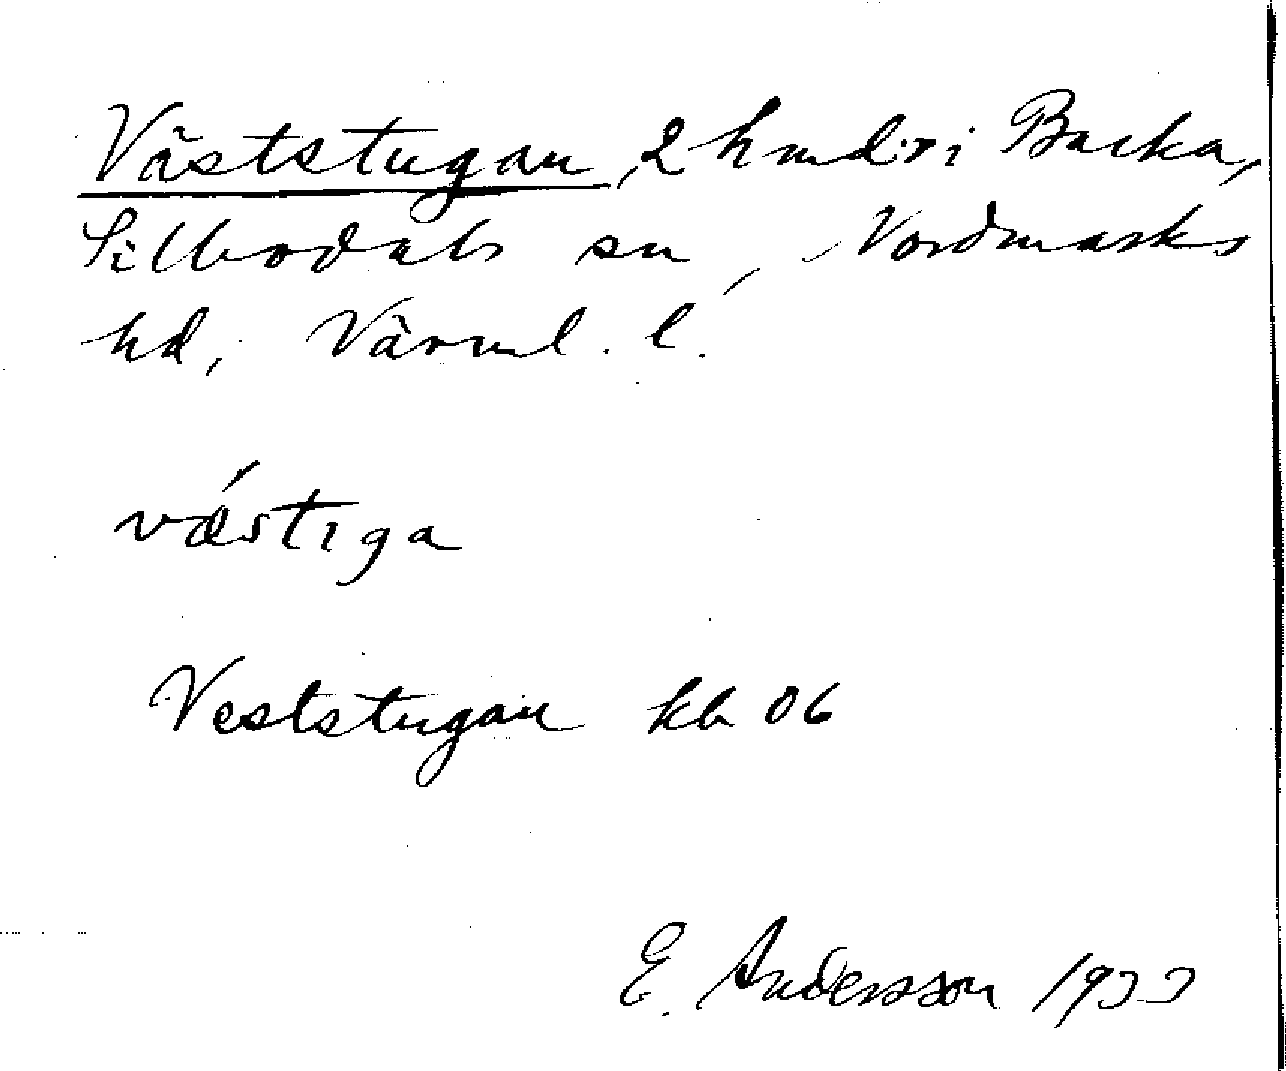 Väststugan, 2 hmd:r i Backa,
Silbodals sn, Nordmarks
hd, Värml. l.
vǽstiga
Veststugan kb 06
E. Andersson 1933